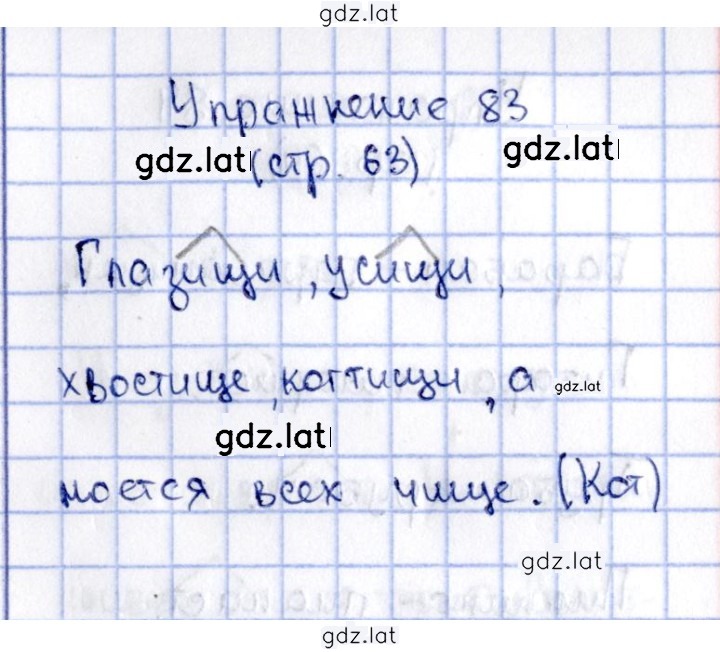 gdz.lat
Упражнение 83
gdz.lat (стр. 63) gdz.lat
Глазищи, усищи,
хвостище, коттищи, а gdz.lat
gdz.lat
моется всех чище. (Кот)
gdz.lat
gdz.lat